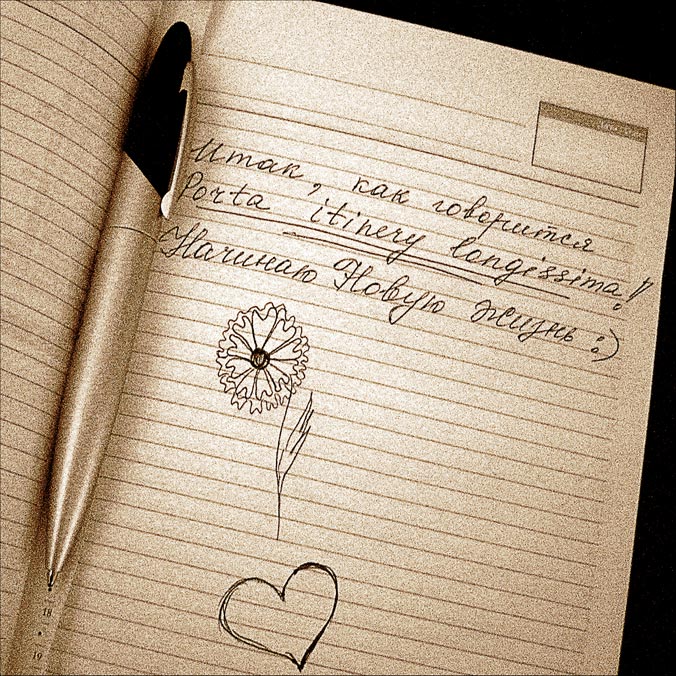 Итак, как говорится
Porta itinery longissima!
Начинаю Новую жизнь :)
18
19